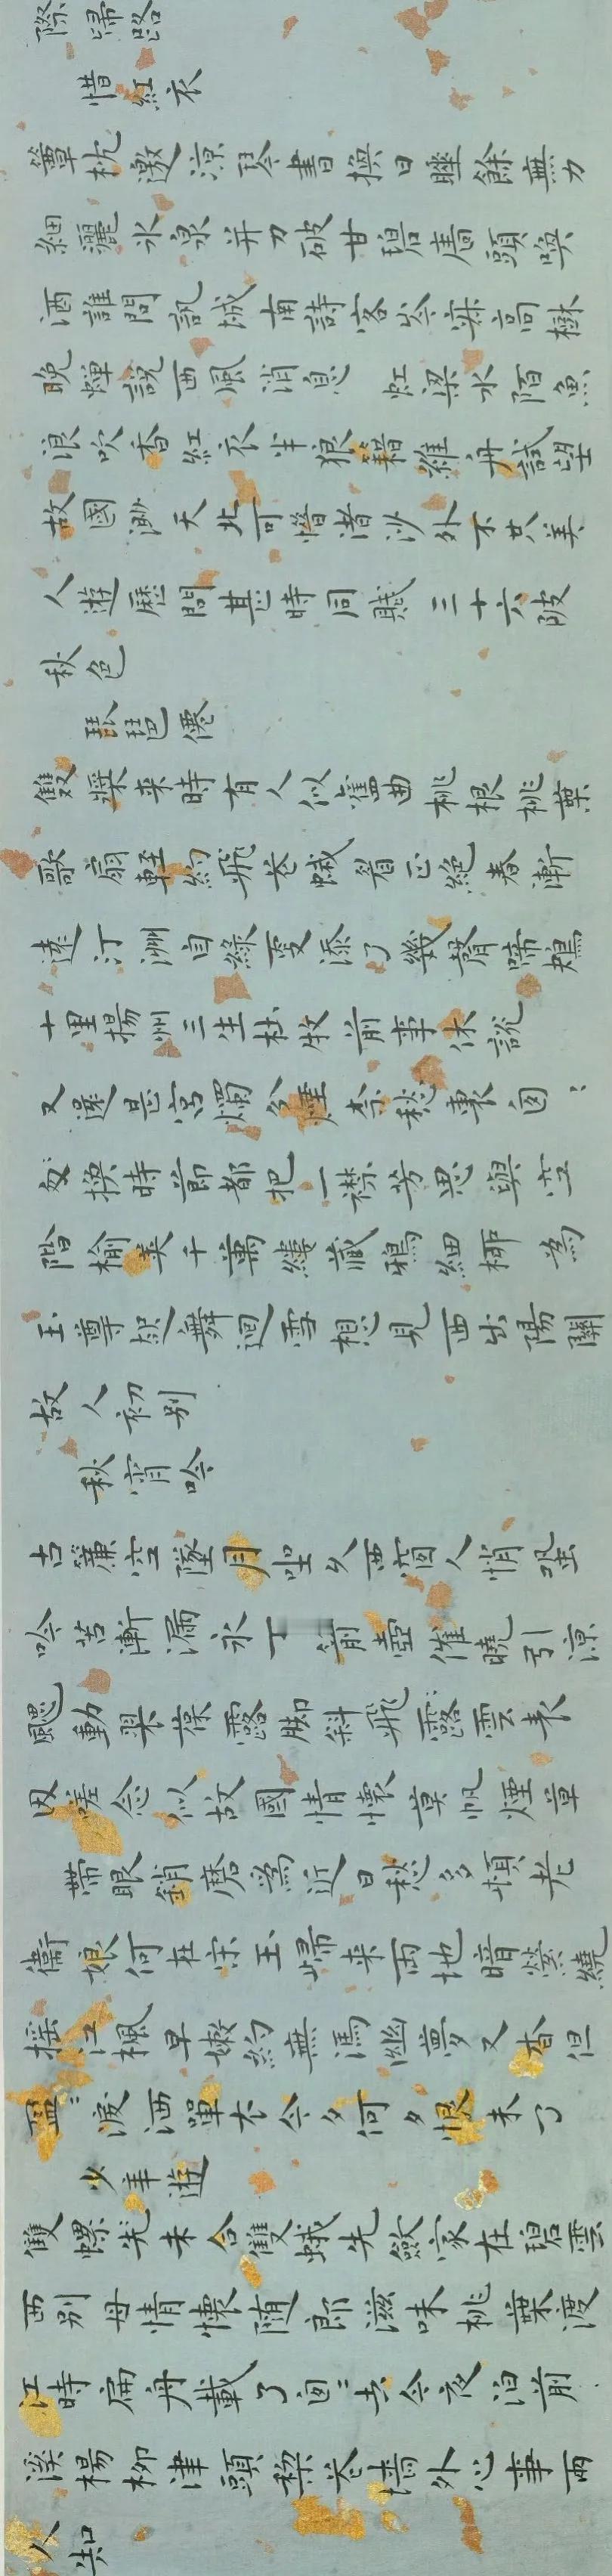 際歸路
惜紅衣
簟枕邀涼琴書換日睡餘無力
細灑冰泉并刀破甘碧牆頭喚
酒誰問訊城南詩客岑寂高樹
晚蟬說西風消息 虹梁水陌魚
浪吹香紅衣半狼籍維舟試望
故國渺天北可惜渚沙外不共美
人遊歷問甚時同賦三十六陂
秋色
琵琶僊
雙槳来時有人似舊曲桃根桃葉
歌扇輕約飛花蛾眉正絕春漸
遠汀洲自綠更添了幾聲啼鴂
十里揚州三生杜牧前事休說
又還是宮燭分煙奈愁裏匆〻
更換時節都把一襟芳思與空
階榆莢千萬縷藏鴉細柳為
玉尊起舞迴雪想見西出陽關
故人初別
秋宵吟
古簾空墜月坐久西窗人悄蛩
吟苦漸漏永丁箭壺催曉引涼
颸動翠葆露腳斜飛露雲表
因嗟念似故國情懷莫帆煙草
帶眼銷磨為近日愁多頓老
衞娘何在宋玉歸来兩地暗縈繞
搖江楓早嫩約無憑幽夢又杳但
盈〻淚洒單衣今夕何夕恨未了
少年遊
雙螺先未合雙蛾先斂家在碧雲
西別母情懷隨郎滋味桃葉渡
江時扁舟載了匆〻去今夜泊前
溪楊柳津頭梨花墙外心事兩
人知